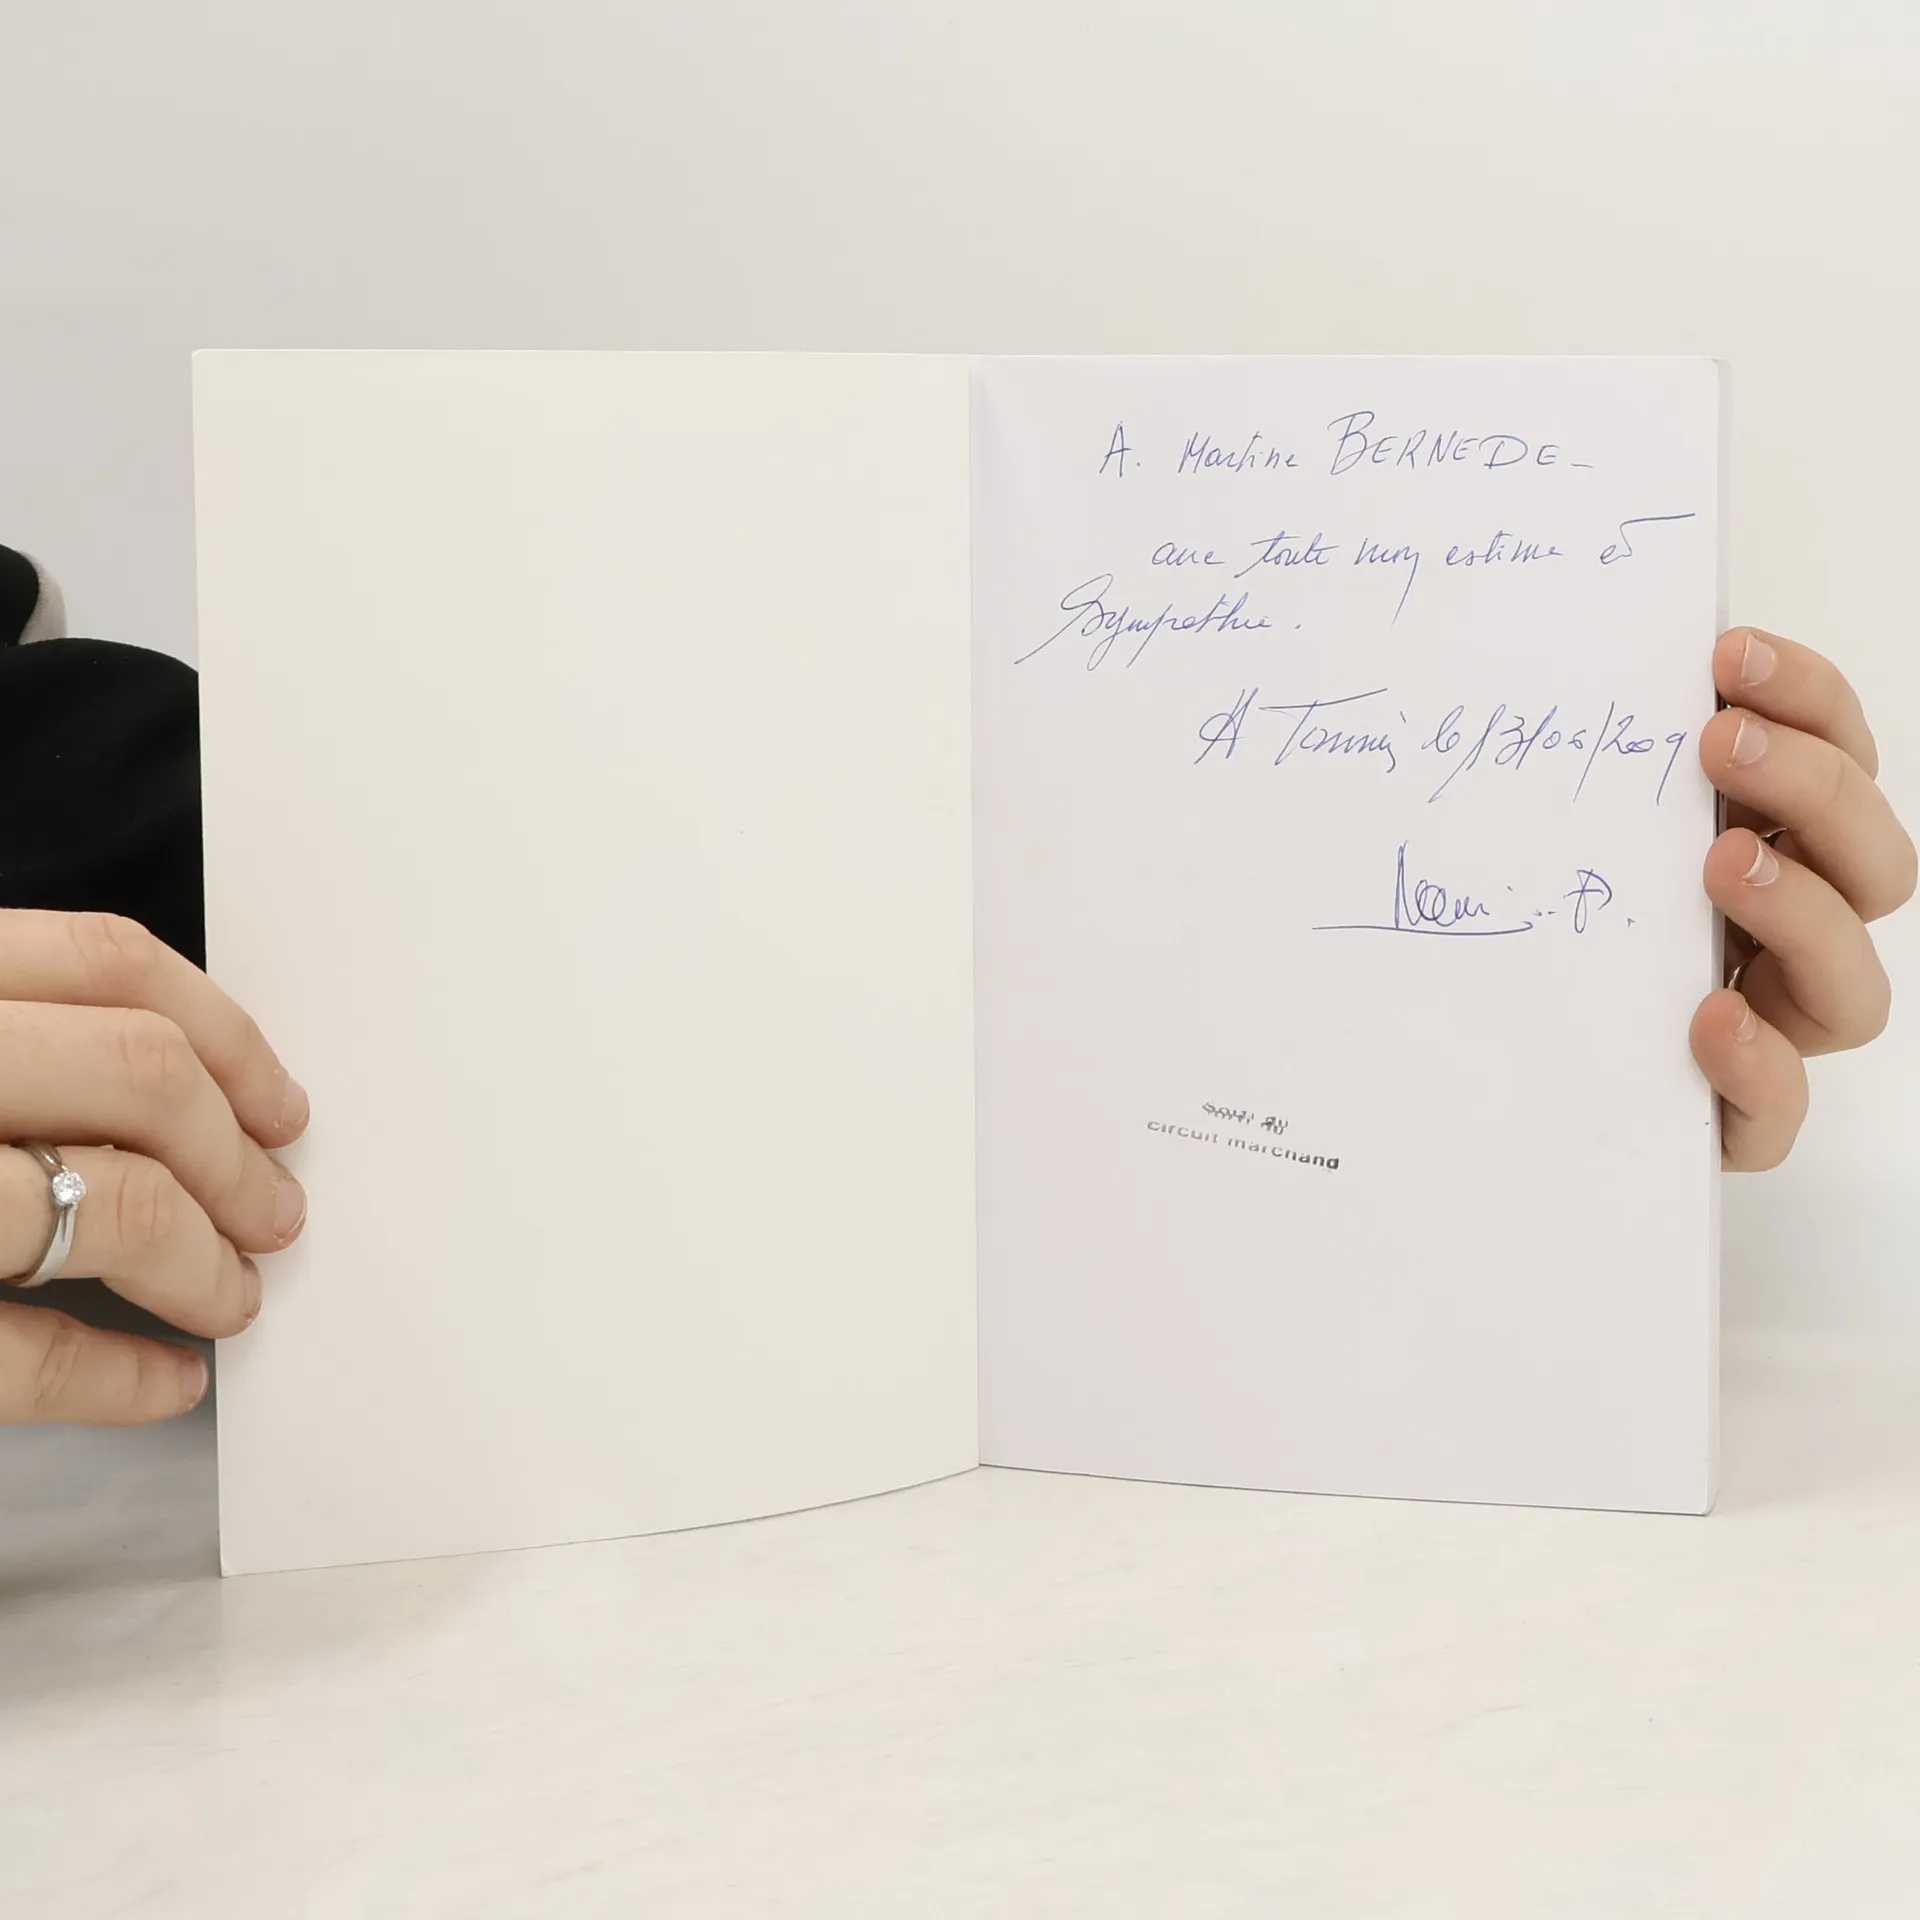 A. Martine BERNEDE -
avec toute mon estime et
Sympathie.
A le 13/06/2009
Sorti du
circuit marchand